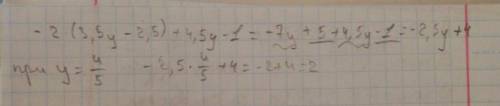 - 2 (3,5y - 2,5) + 4,5y - 1 = -7y + 5 + 4,5y - 1 = -2,5y + 4
при y = 4/5 - 2,5 · 4/5 + 4 = -2 + 4 = 2